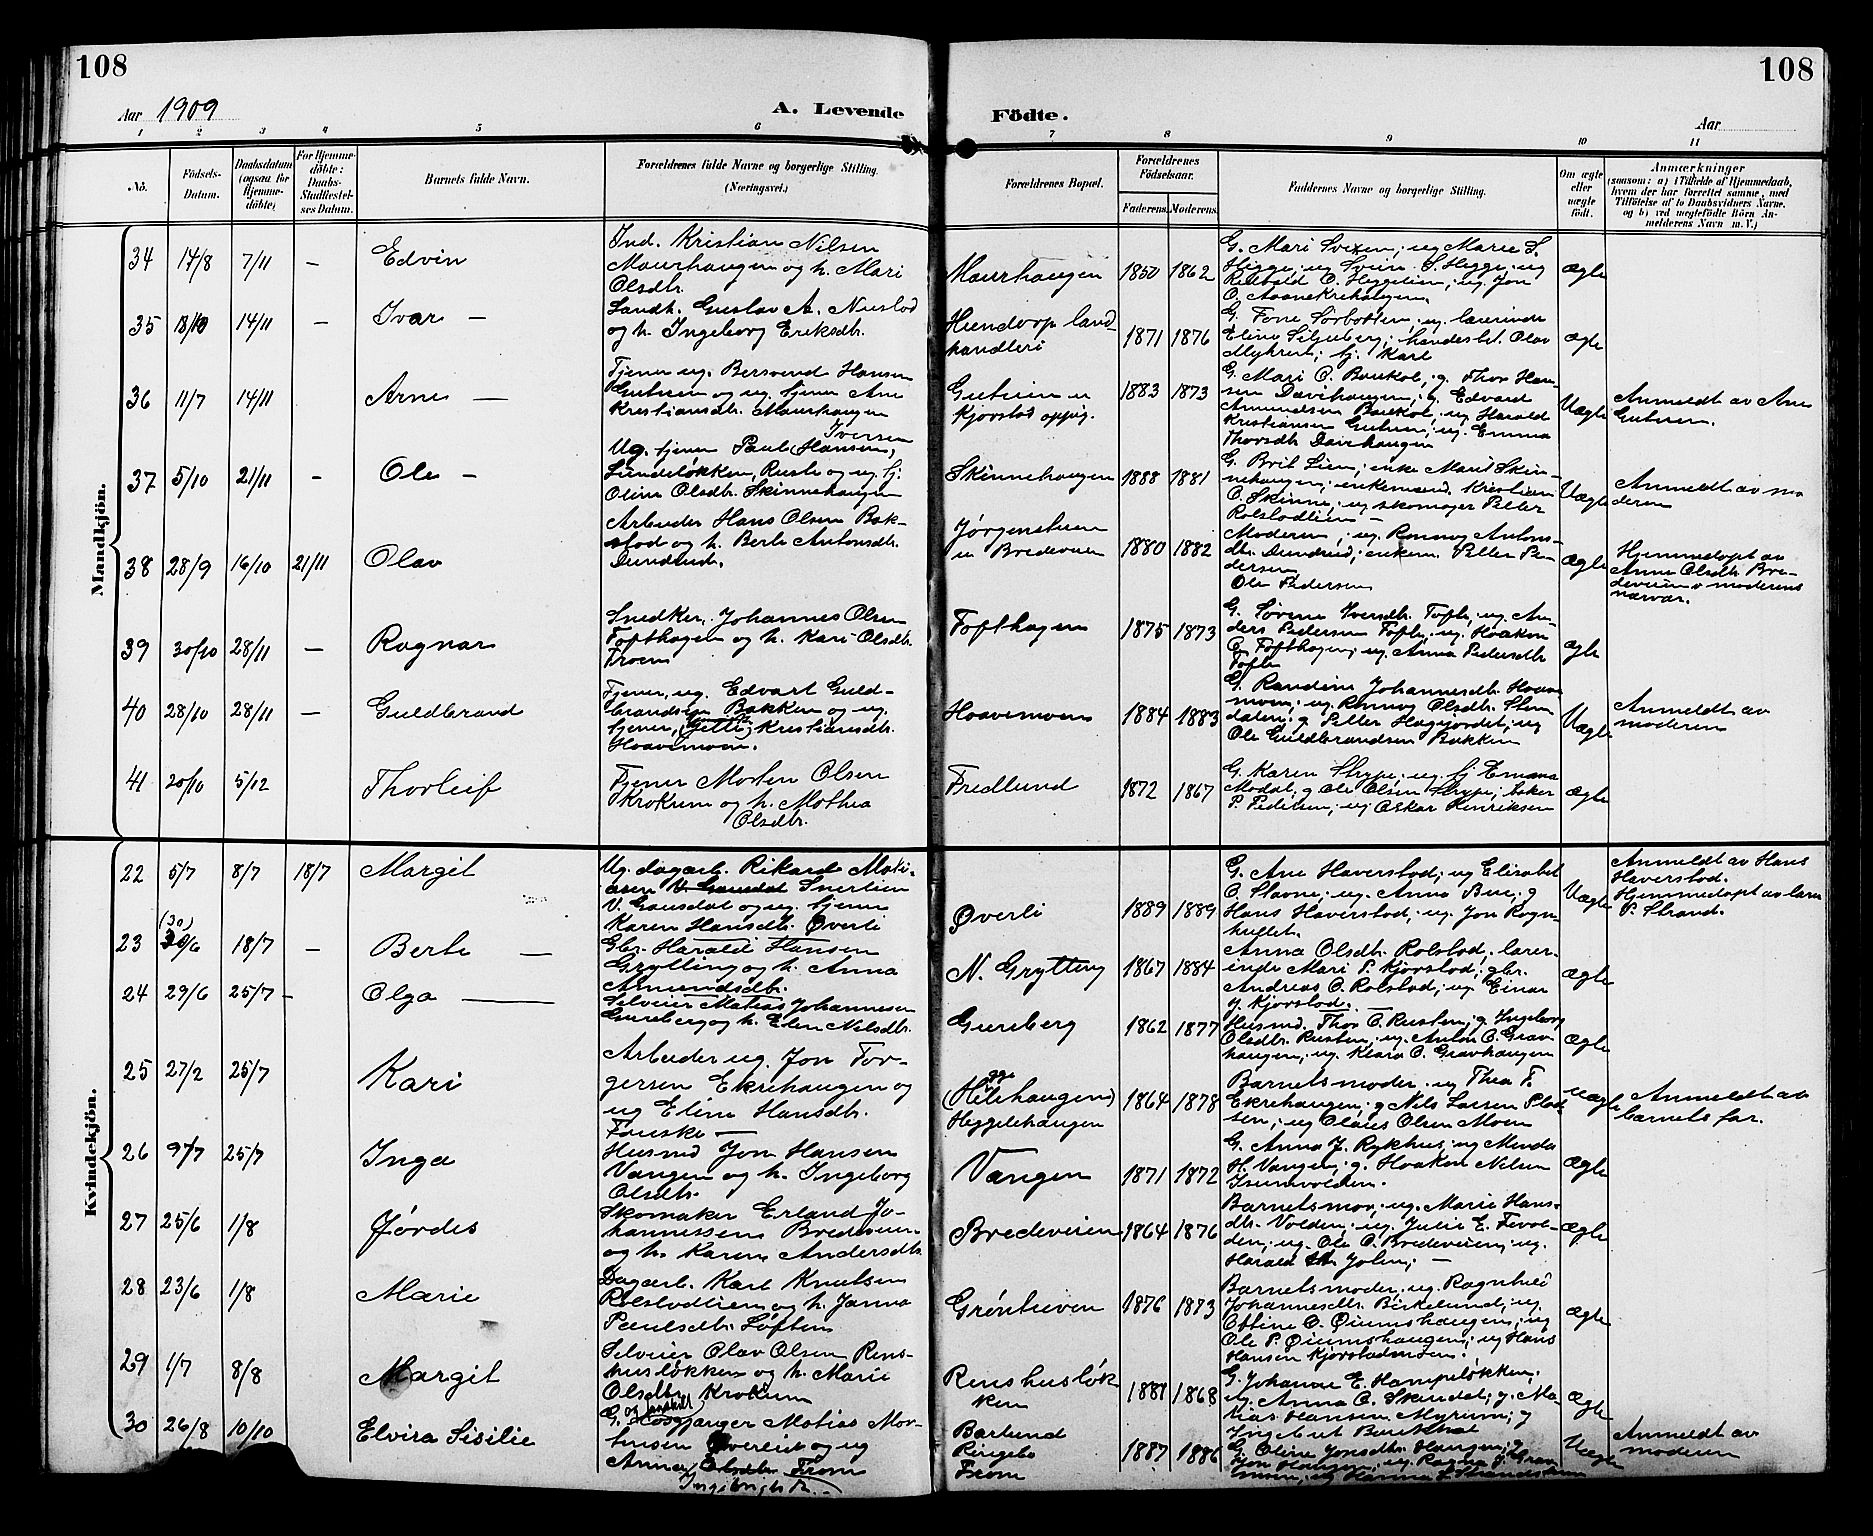 108
108
Aar 1909
A. Levende
Födte.
Aar
1 2 3 4 5 6 7 8 9 10 11
No.
Födsels-
Datum.
Daabsdatum
(ogsaa for
Hjemme-
döbte)
For Hjemme-
döbte:
Daabs-
Stadfæstel-
ses Datum.
Barnets fulde Navn.
Forældrenes fulde Navne og borgerlige Stilling.
(Næringsvei.)
Forældrenes Bopæl.
Forældrenes
Födselsaar.
Faderens. Moderens.
Faddernes Navne og borgerlige Stilling.
Om ægte
eller
uægte
födt.
Anmærkninger
(saasom: a) i Tilfælde af Hjemmedaab,
hvem der har forrettet samme, med
Tilföielse af to Daabsvidners Navne,
og b) ved uægtefödte Börn An-
melderens Navn m. V.)
Mandkjön.
34 14/8 7/11 – Edvin
Ind. Kristian Nilsen
Maurhaugen og h. Mari
Olsdtr.
Maurhaugen 1850 1862
G. Mari Svixen; ug Marie S.
Higge; ug Svein S. Higge; ug
O. Aaanekrehaugen.
ægte
35 18/10 14/11 – Ivar –
Landh. Gustav A. Nustad
og h. Ingeborg Eriksdtr.
Hundorp land-
handleri 1871 1876
G. Tone Sørbotten; ug. lærerinde
Eline Siljeberg; handelsbet. Olav
Myhren; tj. Karl
ægte
36 11/7 14/11 Arne –
Tjener ug. Bersvend Hansen
Gutuen og ug tjener Ane
Kristiansdtr. Maurhaugen
Gutuen u
Kjorstad oppig. 1883 1873
G. Mari O. Baukol; g. Thor Han-
sen Davihaugen; g. Edvard
Amundsen Baukol; ug Harald
Kristiansen Gutuen; ug. Emma
Thorsdtr Davihaugen
Uægte
Anmeldt av Ane
Gutuen.
37 5/10 21/11 – Ole –
Iversen
Ug. tjener Paul (Hansen,
Lundeløkken, Ruste og ug tj.
Oline Olsdtr. Skinnehaugen
Skinnehaugen 1888 1881
G. Brit Lien; enke Marit Skin-
nehaugen; enkemand Kristian
O. Skinne; ug skomager Petter
Rolstadlien –
Uægte
Anmeldt av mo
deren
38 28/9 16/10 21/11 Olav
Arbeider Hans Olsen Bak-
stad og h. Berte Antonsdtr.
Sundlud.
Jørgenstuen
u Bredeveien 1880 1882
Moderen; ug. Ronnog Antons-
dtr. Sundlud; enkem. Petter Pe-
dersen
Ole Pedersen
ægte
Hjemmedøpt av
Anne Olsdtr. Bre-
deveien o moderens
nærvær.
39 30/10 28/11 – Ragnar
Snedker. Johannes Olsen
Tofthagen og h. Kari Olsdtr.
Froen
Tofthagen 1875 1873
G. Søvrine Iversdtr. Tofte; ug. An-
ders Pedersen Tofte; ug. Haakon
O. Tofthagen; ug. Anna Pedersdtr
Tofte
ægte
40 28/10 28/11 – Guldbrand
Tjener, ug. Edvart Guld-
brandsen Bakken og ug.
tjener, (Jette) Kristiansdtr.
Hoavemoen.
Hoavemoen 1884 1883
G. Randine Johannesdtr. Hoave
moen; ug. Ronnog Olsdtr. Sten
dalen; g Petter Hagejordet; ug
Ole Guldbrandsen Bakken
Uægte
Anmeldt av
moderen
41 20/10 5/12 Thorleif
Tjener Morten Olsen
Krokum og h. Mathea
Olsdtr.
Fredlund 1872 1867
G. Karen Strype; ug. tj Emma
Modal; g Ole Olsen Strype; baker
P. Pedersen; ug Oskar Henriksen
ægte
Kvindekjön.
22 5/7 8/7 18/7 Margit
Ug. dagarb. Rikard Mati-
asen V. Gausdal Snertlien
V. Gausdal og ug. tjener
Karen Hansdtr. Øverli
Øverli 1889 1889
G. Ane Haverstad; ug Elisabet
O. Stavne; ug. Anna Bue; g
Hans Haverstad; ug. Jon Rogn-
hullet.
Uægte
Anmeldt av Hans
Haverstad.
Hjemmedøpt av lærer
P. Strand.
23 (30) 30/6 18/7 – Berte –
Gbr. Harald Hansen
Grytting og h. Anna
Amundsdtr.
N. Grytting 1867 1884
Anna Olsdtr. Rolstad; lærer-
inde Mari P. Kjorstad; gbr.
Andreas O. Rolstad; ug Einar
J. Kjorstad.
ægte
24 29/6 25/7 – Olga –
Selveier Matias Johannesen
Gunberg og h. Eline Nilsdtr.
Gunberg 1862 1877
Husmd. Thor O. Rusten; g Ingeborg
Olsdtr. Rusten; ug. Anton O. Grav-
haugen; ug. Klara O. Gravhaugen
ægte
25 27/2 25/7 Kari
Arbeider ug. Jon Tor-
gersen Ekrehaugen og
ug Eline Hansdtr.
Fauske –
Heggelehaugen 1864 1878
Barnets moder; ug Thea T.
Ekrehaugen; g Nils Larsen Plads
sen; ug Olaus Olsen Moen
uægte
Anmeldt av
barnets far.
26 9/7 25/7 Inga
Husmd Jon Hansen
Vangen og h. Ingeborg
Olsdtr.
Vangen 1871 1872
G. Anna J. Rykhus; ug Menda
H. Vangen; g. Haakon Nilsen
ægte
27 25/6 1/8 Jørdis
Skomaker Erland Jo-
hannessen Bredeveien
og h. Karen Andersdtr.
Bredeveien 1864 1876
Barnets mor; ug. Marie Hans-
dtr. Volden; ug. Julie E. Tevol-
den; ug. Ole O. Bredeveien; ug.
Harald Jolen; –
ægte
28 23/6 1/8 Marie
Dagarb. Karl Knutsen
Rolstadlien og h. Janna
Paulsdtr. Løften
Grøntuven 1876 1883
Barnets moder; ug Ragnhild
Johannesdtr. Birkelund; ug.
Oline O. Øiumshaugen; ug
Ole P. Øiumshaugen; ug Hans
Hansen Kjorstadmoen.
ægte
29 1/7 8/8 Margit
Selveier Olav Olsen Rens-
husløkken og h. Marie
Olsdtr. Krokum
Renshusløk
ken 1881 1868
G. Johanne E. Hampeløkken;
ug. Anna O. Skurdal; g. Ma-
tias Hansen Myrum; g
Ingebret Baukhol
ægte
30 26/8 10/10 Elvira Sisilie
G. og landhdl. Skogganger Matias Mor-
tensen Øvereide og ug
Anna Olsdtr. Frøm
Ingebrigtstr. –
Barlund
Ringebo
Frøm 1887 1886
G. Oline Jonsdtr. Haugen; g
Jon Haugen; ug. Ragna J. Grav
moen; ug Hanna L. Strandstuen
Uægte
Anmeldt av
moderen